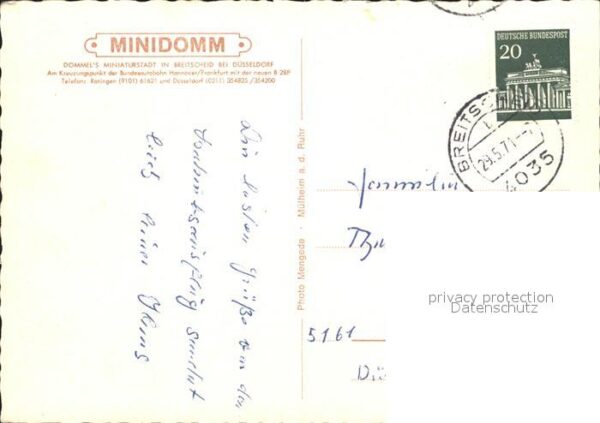 MINIDOMM
DOMMEL'S MINIATURSTADT IN BREITSCHEID BEI DÜSSELDORF
Am Kreuzungspunkt der Bundesautobahn Hannover/Frankfurt mit der neuen B 288
Telefonz. Ratingen (9101) 61621 und Düsseldorf (0211) 354825/354200
DEUTSCHE BUNDESPOST
20
29.5.71
4035
Die besten Grüße von der
sendet
Euch
Photo Mengede · Mülheim a. d. Ruhr
Familie
5161
privacy protection
Datenschutz